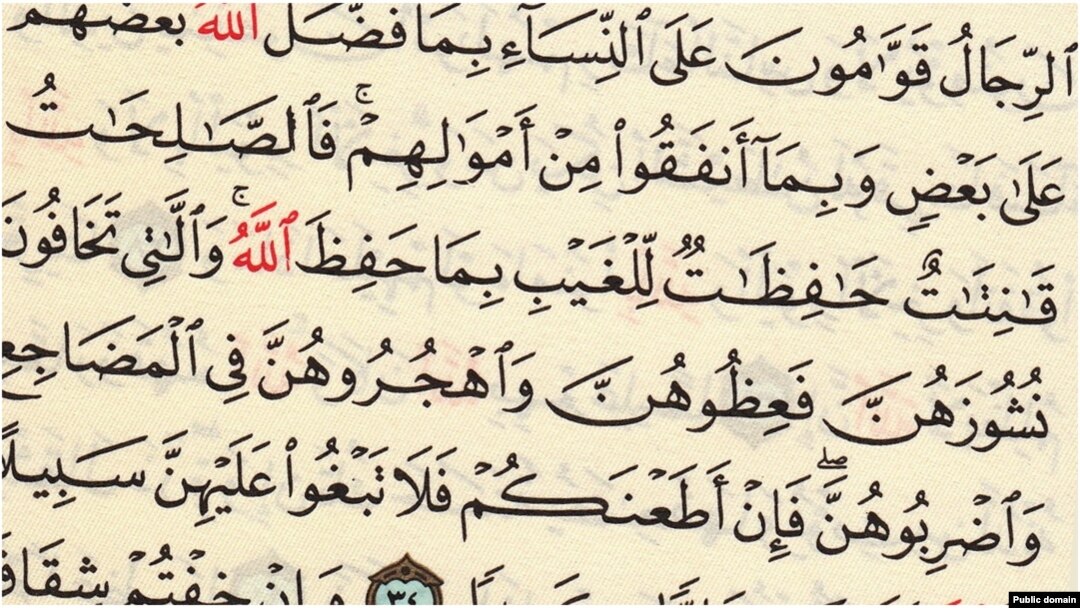 ٱلرِّجَالُ قَوَّٰمُونَ عَلَى ٱلنِّسَآءِ بِمَا فَضَّلَ ٱللَّهُ بَعْضَهُمْ
عَلَىٰ بَعْضٍ وَبِمَآ أَنفَقُوا۟ مِنْ أَمْوَٰلِهِمْ ۚ فَٱلصَّـٰلِحَـٰتُ
قَـٰنِتَـٰتٌ حَـٰفِظَـٰتٌ لِّلْغَيْبِ بِمَا حَفِظَ ٱللَّهُ ۚ وَٱلَّـٰتِى تَخَافُونَ
نُشُوزَهُنَّ فَعِظُوهُنَّ وَٱهْجُرُوهُنَّ فِى ٱلْمَضَاجِعِ
وَٱضْرِبُوهُنَّ ۖ فَإِنْ أَطَعْنَكُمْ فَلَا تَبْغُوا۟ عَلَيْهِنَّ سَبِيلًا
٣٤ وَإِنْ خِفْتُمْ شِقَاقَ
Public domain